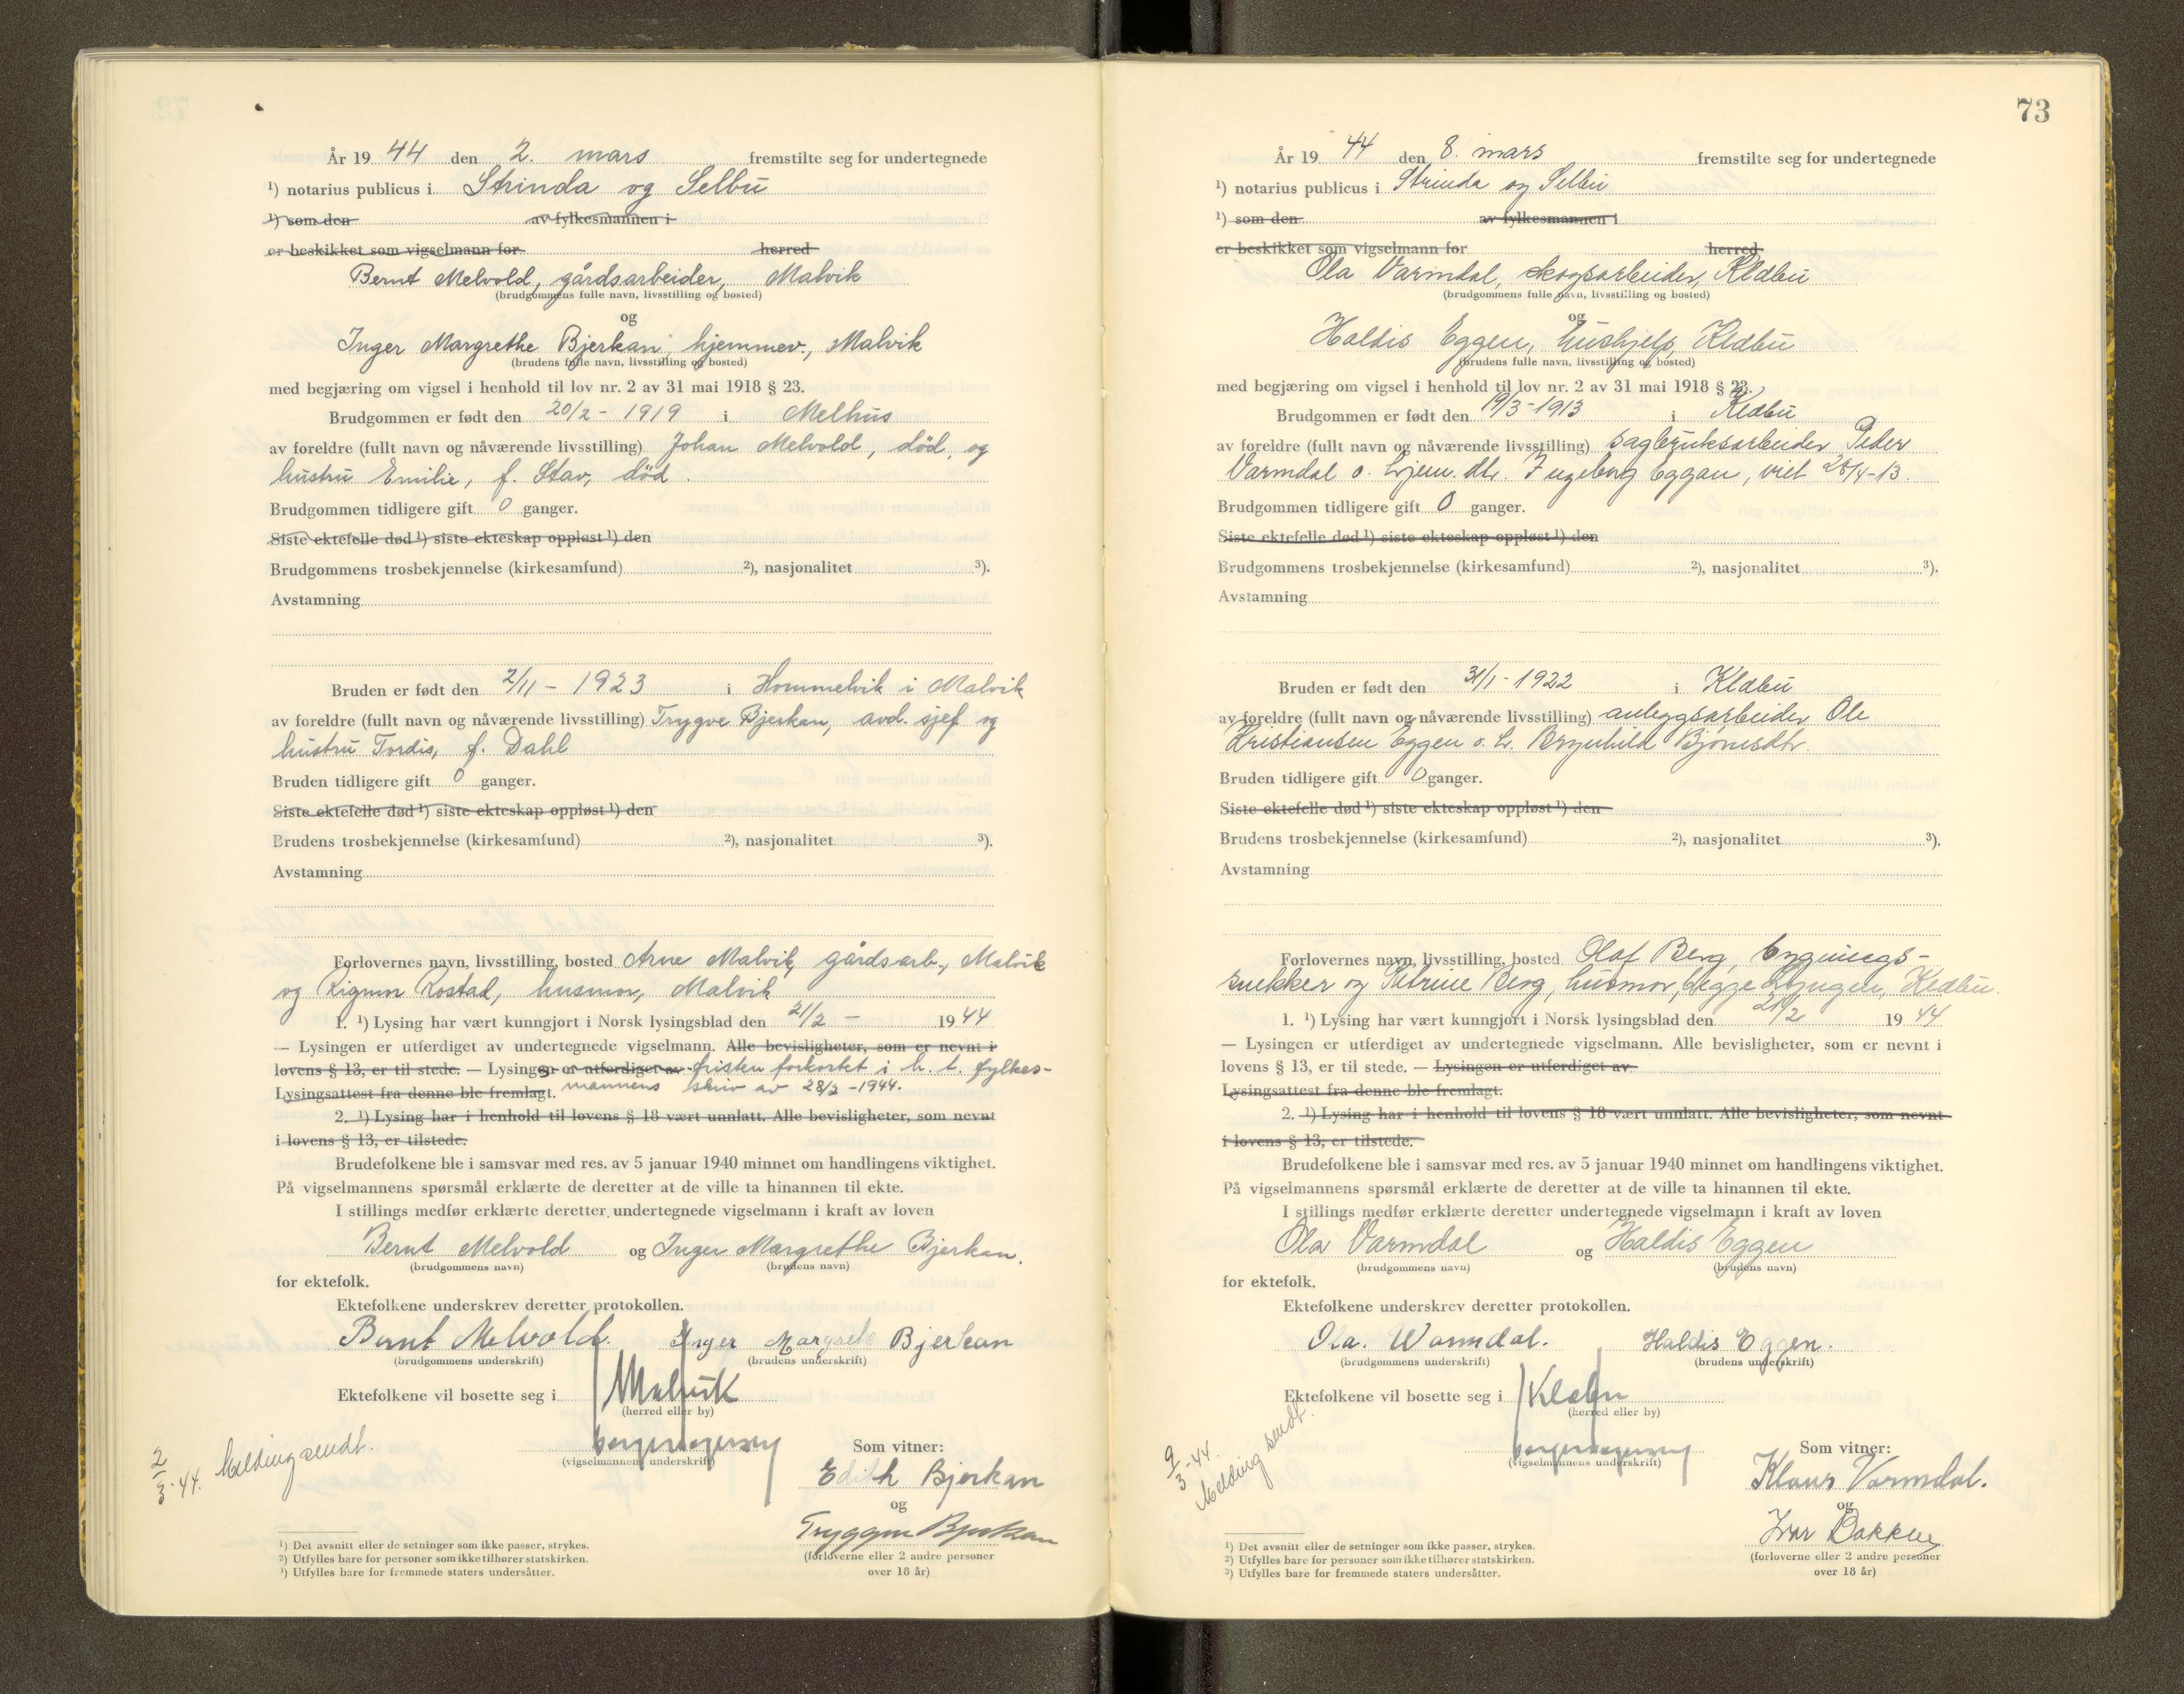 År 19 44 den 2. mars fremstilte seg for undertegnede
¹) notarius publicus i Strinda og Selbu
¹) som den av fylkesmannen i
er beskikket som vigselmann for herred
Bernt Melvold, gårdsarbeider, Malvik
(brudgommens fulle navn, livsstilling og bosted)
og
Inger Margrethe Bjerkan, hjemmev., Malvik
(brudens fulle navn, livsstilling og bosted)
med begjæring om vigsel i henhold til lov nr. 2 av 31 mai 1918 § 23.
Brudgommen er født den 20/2 - 1919 i Melhus
av foreldre (fullt navn og nåværende livsstilling) Johan Melvold, död, og
hustru Emilie, f. Stav, död.
Brudgommen tidligere gift 0 ganger.
Siste ektefelle død ¹) siste ekteskap oppløst ¹) den
Brudgommens trosbekjennelse (kirkesamfund) ²), nasjonalitet ³).
Avstamning
Bruden er født den 2/11 - 1923 i Hommelvik i Malvik
av foreldre (fullt navn og nåværende livsstilling) Trygve Bjerkan, avd. sjef og
hustru Tordis, f. Dahl
Bruden tidligere gift 0 ganger.
Siste ektefelle død ¹) siste ekteskap oppløst ¹) den
Brudens trosbekjennelse (kirkesamfund) ²), nasjonalitet ³).
Avstamning
Forlovernes navn, livsstilling, bosted Arne Malvik, gårdsarb., Malvik
og Rostad, husmor, Malvik
1. ¹) Lysing har vært kunngjort i Norsk lysingsblad den 21/2 - 19 44
— Lysingen er utferdiget av undertegnede vigselmann. Alle bevisligheter, som er nevnt i
lovens § 13, er til stede. — Lysingen er utferdiget av fristen forkortet i h. t. fylkes-
Lysingsattest fra denne ble fremlagt. mannens skriv av 28/2 - 1944.
2. ¹) Lysing har i henhold til lovens § 18 vært unnlatt. Alle bevisligheter, som nevnt
i lovens § 13, er tilstede.
Brudefolkene ble i samsvar med res. av 5 januar 1940 minnet om handlingens viktighet.
På vigselmannens spørsmål erklærte de deretter at de ville ta hinannen til ekte.
I stillings medfør erklærte deretter undertegnede vigselmann i kraft av loven
Bernt Melvold og Inger Margrethe Bjerkan.
(brudgommens navn) (brudens navn)
for ektefolk.
Ektefolkene underskrev deretter protokollen.
Bernt Melvold. Inger Margrete Bjerkan
(brudgommens underskrift) (brudens underskrift)
Ektefolkene vil bosette seg i Malvik
(herred eller by)
(vigselmannens underskrift)
Som vitner:
Edith Bjerkan
og
Bjerkan
(forloverne eller 2 andre personer
over 18 år)
2/3-44. Melding sendt.
¹) Det avsnitt eller de setninger som ikke passer, strykes.
²) Utfylles bare for personer som ikke tilhører statskirken.
³) Utfylles bare for fremmede staters undersåtter.
73
År 19 44 den 8. mars fremstilte seg for undertegnede
¹) notarius publicus i Strinda og Selbu
¹) som den av fylkesmannen i
er beskikket som vigselmann for herred
Ola Varmdal, skogsarbeider, Klæbu
(brudgommens fulle navn, livsstilling og bosted)
og
Haldis Eggen, hushjelp, Klæbu
(brudens fulle navn, livsstilling og bosted)
med begjæring om vigsel i henhold til lov nr. 2 av 31 mai 1918 § 23.
Brudgommen er født den 19/3-1913 i Klæbu
av foreldre (fullt navn og nåværende livsstilling) sagbruksarbeider Peder
Varmdal o. hjem. dtr. Ingeborg Eggan, viet 28/4-13.
Brudgommen tidligere gift 0 ganger.
Siste ektefelle død ¹) siste ekteskap oppløst ¹) den
Brudgommens trosbekjennelse (kirkesamfund) ²), nasjonalitet ³).
Avstamning
Bruden er født den 31/1-1922 i Klæbu
av foreldre (fullt navn og nåværende livsstilling) anleggsarbeider Ole
Kristiansen Eggen o. h. Brynhild Bjørnsdtr.
Bruden tidligere gift 0 ganger.
Siste ektefelle død ¹) siste ekteskap oppløst ¹) den
Brudens trosbekjennelse (kirkesamfund) ²), nasjonalitet ³).
Avstamning
Forlovernes navn, livsstilling, bosted Olaf Berg, bygnings-
snekker og Petrine Berg, husmor, begge Klæbu.
1. ¹) Lysing har vært kunngjort i Norsk lysingsblad den 21/2 19 44
— Lysingen er utferdiget av undertegnede vigselmann. Alle bevisligheter, som er nevnt i
lovens § 13, er til stede. — Lysingen er utferdiget av
Lysingsattest fra denne ble fremlagt.
2. ¹) Lysing har i henhold til lovens § 18 vært unnlatt. Alle bevisligheter, som nevnt
i lovens § 13, er tilstede.
Brudefolkene ble i samsvar med res. av 5 januar 1940 minnet om handlingens viktighet.
På vigselmannens spørsmål erklærte de deretter at de ville ta hinannen til ekte.
I stillings medfør erklærte deretter undertegnede vigselmann i kraft av loven
Ola Varmdal og Haldis Eggen
(brudgommens navn) (brudens navn)
for ektefolk.
Ektefolkene underskrev deretter protokollen.
Ola. Warmdal. Haldis Eggen.
(brudgommens underskrift) (brudens underskrift)
Ektefolkene vil bosette seg i Klæbu
(herred eller by)
(vigselmannens underskrift)
Som vitner:
Klaus Varmdal.
og
Ivar Bakken
(forloverne eller 2 andre personer
over 18 år)
9/3-44. Melding sendt.
¹) Det avsnitt eller de setninger som ikke passer, strykes.
²) Utfylles bare for personer som ikke tilhører statskirken.
³) Utfylles bare for fremmede staters undersåtter.